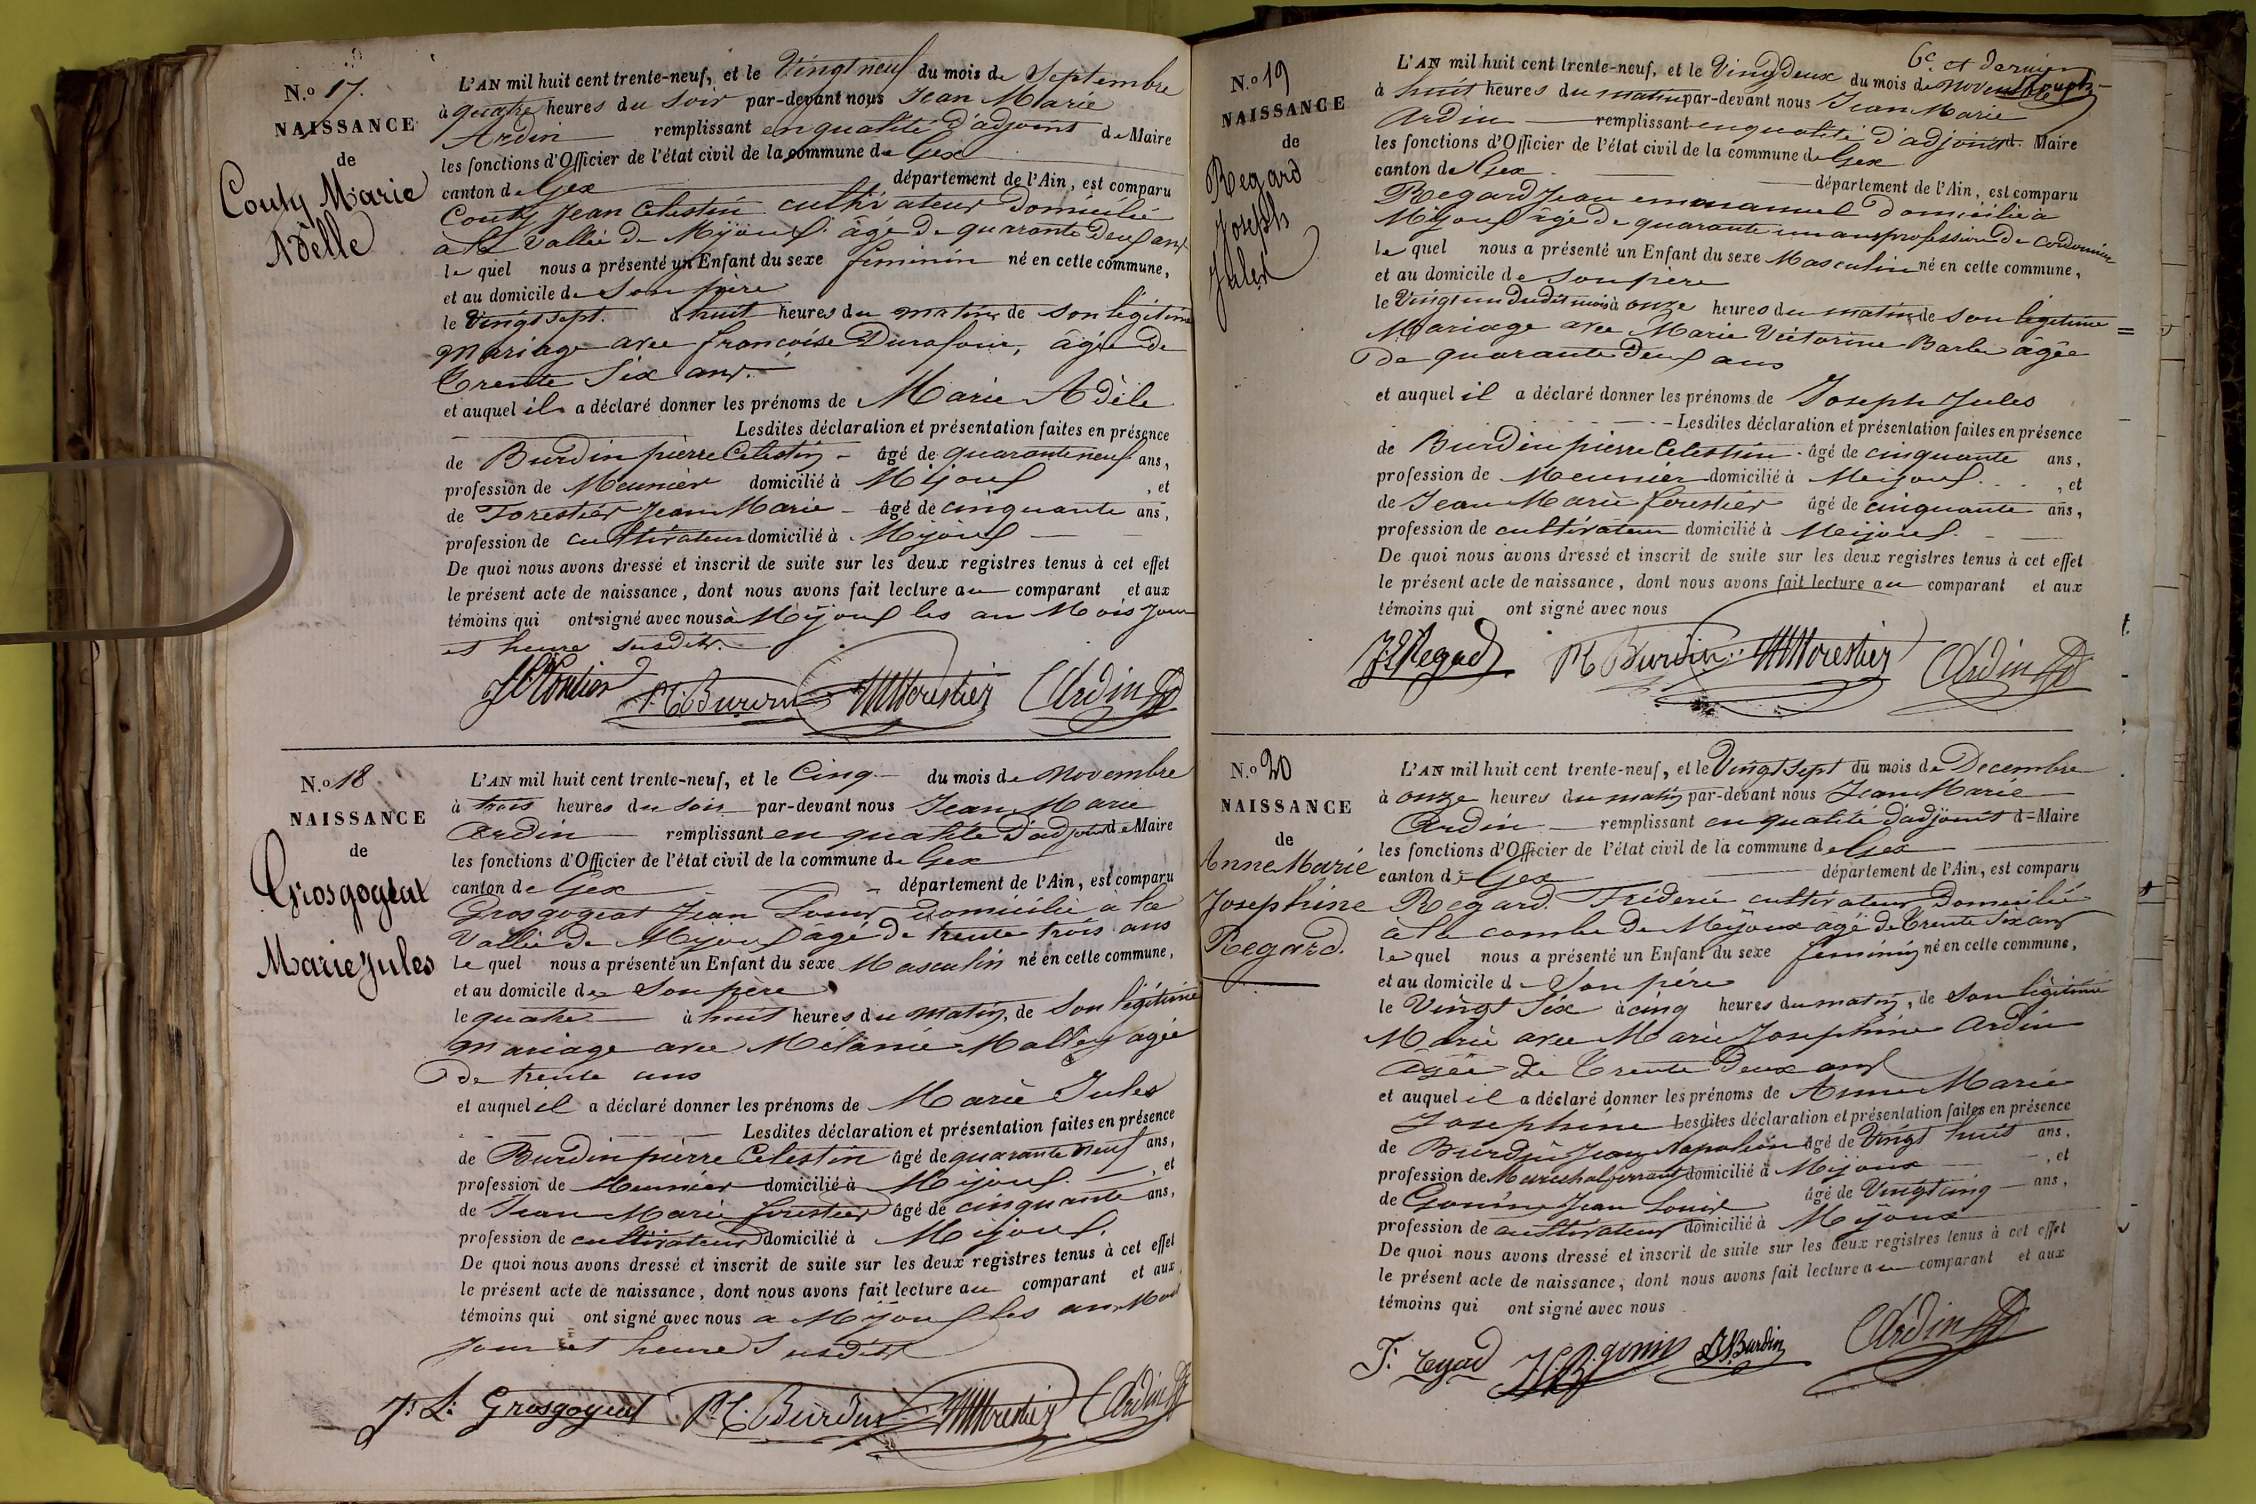 N.o 17.
NAISSANCE
de
Couty Marie
Adelle
L'AN mil huit cent trente-neuf, et le Vingt neuf du mois de Septembre
à quatre heures du Soir par-devant nous Jean Marie
Ardin remplissant en qualité d'adjoint de Maire
les fonctions d'Officier de l'état civil de la commune de Gex
canton de Gex département de l'Ain, est comparu
Couty Jean Celestin cultivateur Domicilié
a la Vallée de Mijoux âgé de quarante Deux ans
le quel nous a présenté un Enfant du sexe feminin né en cette commune,
et au domicile de Son père
le Vingt sept. à huit heures du matin de son légitime
mariage avec françoise Durafour, âgée de
Trente Six ans.
et auquel il a déclaré donner les prénoms de Marie Adèle
Lesdites déclaration et présentation faites en présence
de Burdin pierre Celestin âgé de quarante neuf ans,
profession de Meunier domicilié à Mijoux , et
de Forestier Jean Marie âgé de cinquante ans,
profession de cultivateur domicilié à Mijoux
De quoi nous avons dressé et inscrit de suite sur les deux registres tenus à cet effet
le présent acte de naissance, dont nous avons fait lecture au comparant et aux
témoins qui ont signé avec nous à Mijoux les an Mois Jour
et heure susdits.
P.C. Burdin Forestier Ardin
N.o 18
NAISSANCE
de
Grosgogeat
Marie Jules
L'AN mil huit cent trente-neuf, et le Cinq du mois de Novembre
à trois heures du soir par-devant nous Jean Marie
Ardin remplissant en qualité D'adjoint de Maire
les fonctions d'Officier de l'état civil de la commune de Gex
canton de Gex département de l'Ain, est comparu
Grosgogeat Jean Louis Domicilié a la
Vallée de Mijoux agé de trente trois ans
le quel nous a présenté un Enfant du sexe Masculin né en cette commune,
et au domicile de Son père
le quatre à huit heures du matin, de Son légitime
mariage avec Mélanie Malley agée
de trente ans
et auquel il a déclaré donner les prénoms de Marie Jules
Lesdites déclaration et présentation faites en présence
de Burdin pierre Celestin âgé de quarante neuf ans,
profession de Meunier domicilié à Mijoux. , et
de Jean Marie forestier âgé de cinquante ans,
profession de cultivateur domicilié à Mijoux.
De quoi nous avons dressé et inscrit de suite sur les deux registres tenus à cet effet
le présent acte de naissance, dont nous avons fait lecture au comparant et aux
témoins qui ont signé avec nous a Mijoux les an Mois
Jour et heure Susdits
J: L: Grosgogeat P.C. Burdin Forestier Ardin
6e et dernier
N.o 19
NAISSANCE
de
Regard
Joseph
Jules
L'AN mil huit cent trente-neuf, et le Vingt Deux du mois de Novembre
à huit heures du matin par-devant nous Jean Marie
Ardin remplissant en qualité d'adjoint d. Maire
les fonctions d'Officier de l'état civil de la commune de Gex
canton de Gex département de l'Ain, est comparu
Regard Jean emmanuel Domicilié a
Mijoux âgé de quarante un ans profession de cordonnier
le quel nous a présenté un Enfant du sexe Masculin né en cette commune,
et au domicile de son père
le Vingt un dudit mois à onze heures du matin de son légitime
Mariage avec Marie Victorine Barbe âgée
de quarante Deux ans
et auquel il a déclaré donner les prénoms de Joseph Jules
Lesdites déclaration et présentation faites en présence
de Burdin pierre Celestin âgé de cinquante ans,
profession de Meunier domicilié à Mijoux. , et
de Jean Marie forestier âgé de cinquante ans,
profession de cultivateur domicilié à Mijoux.
De quoi nous avons dressé et inscrit de suite sur les deux registres tenus à cet effet
le présent acte de naissance, dont nous avons fait lecture au comparant et aux
témoins qui ont signé avec nous
Regad P.C. Burdin Forestier Ardin
N.o 20
NAISSANCE
de
Anne Marie
Josephine
Regard.
L'AN mil huit cent trente-neuf, et le Vingt Sept du mois de Decembre
à onze heures du matin par-devant nous Jean Marie
Ardin remplissant en qualité d'adjoint d= Maire
les fonctions d'Officier de l'état civil de la commune de Gex
canton de Gex département de l'Ain, est comparu
Regard. Fréderic cultivateur Domicilié
à la combe de Mijoux agé de Trente Six ans
le quel nous a présenté un Enfant du sexe feminin né en cette commune,
et au domicile de Son père
le Vingt Six à cinq heures du matin, de Son légitime
Marie avec Marie Josephine Ardin
agée de Trente Deux ans
et auquel il a déclaré donner les prénoms de Anne Marie
Josephine Lesdites déclaration et présentation faites en présence
de Burdin Jean Napoléon âgé de Vingt huit ans,
profession de Marechal ferrant domicilié à Mijoux , et
de Gonin Jean Louis âgé de Vingt cinq ans,
profession de cultivateur domicilié à Mijoux
De quoi nous avons dressé et inscrit de suite sur les deux registres tenus à cet effet
le présent acte de naissance, dont nous avons fait lecture au comparant et aux
témoins qui ont signé avec nous
F: regad gonin Burdin Ardin